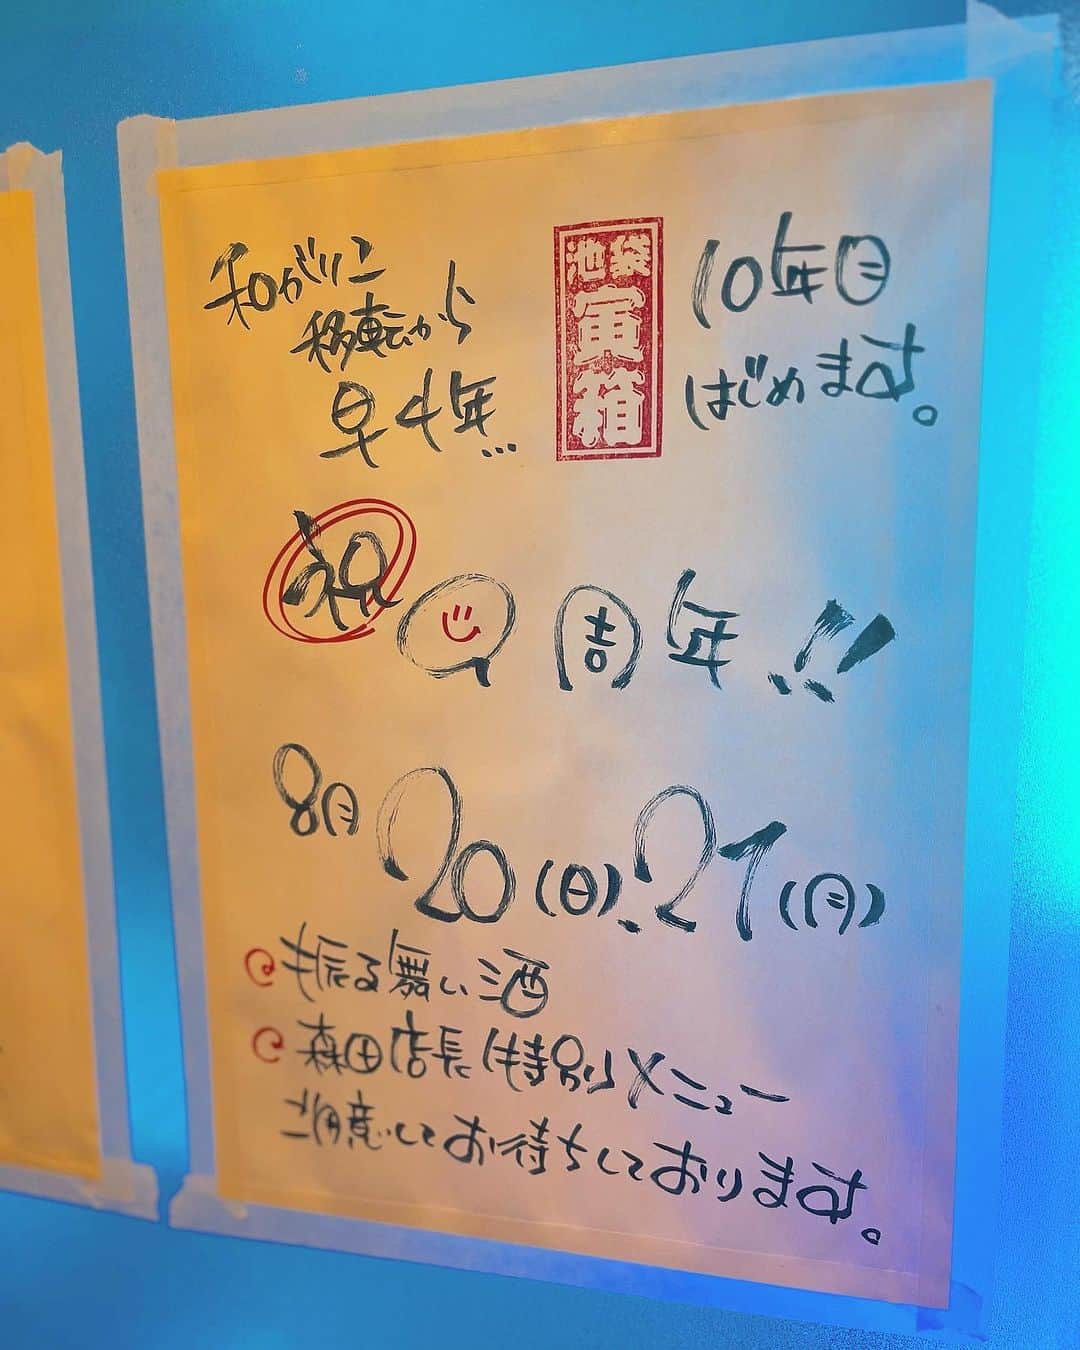 和がりこ
移転から
早4年...
池袋
寅箱
10年目
はじめます。
祝 9周年!!
8月20(日).21(月)
振る舞い酒
森田店長特別メニュー
ご用意してお待ちしております。